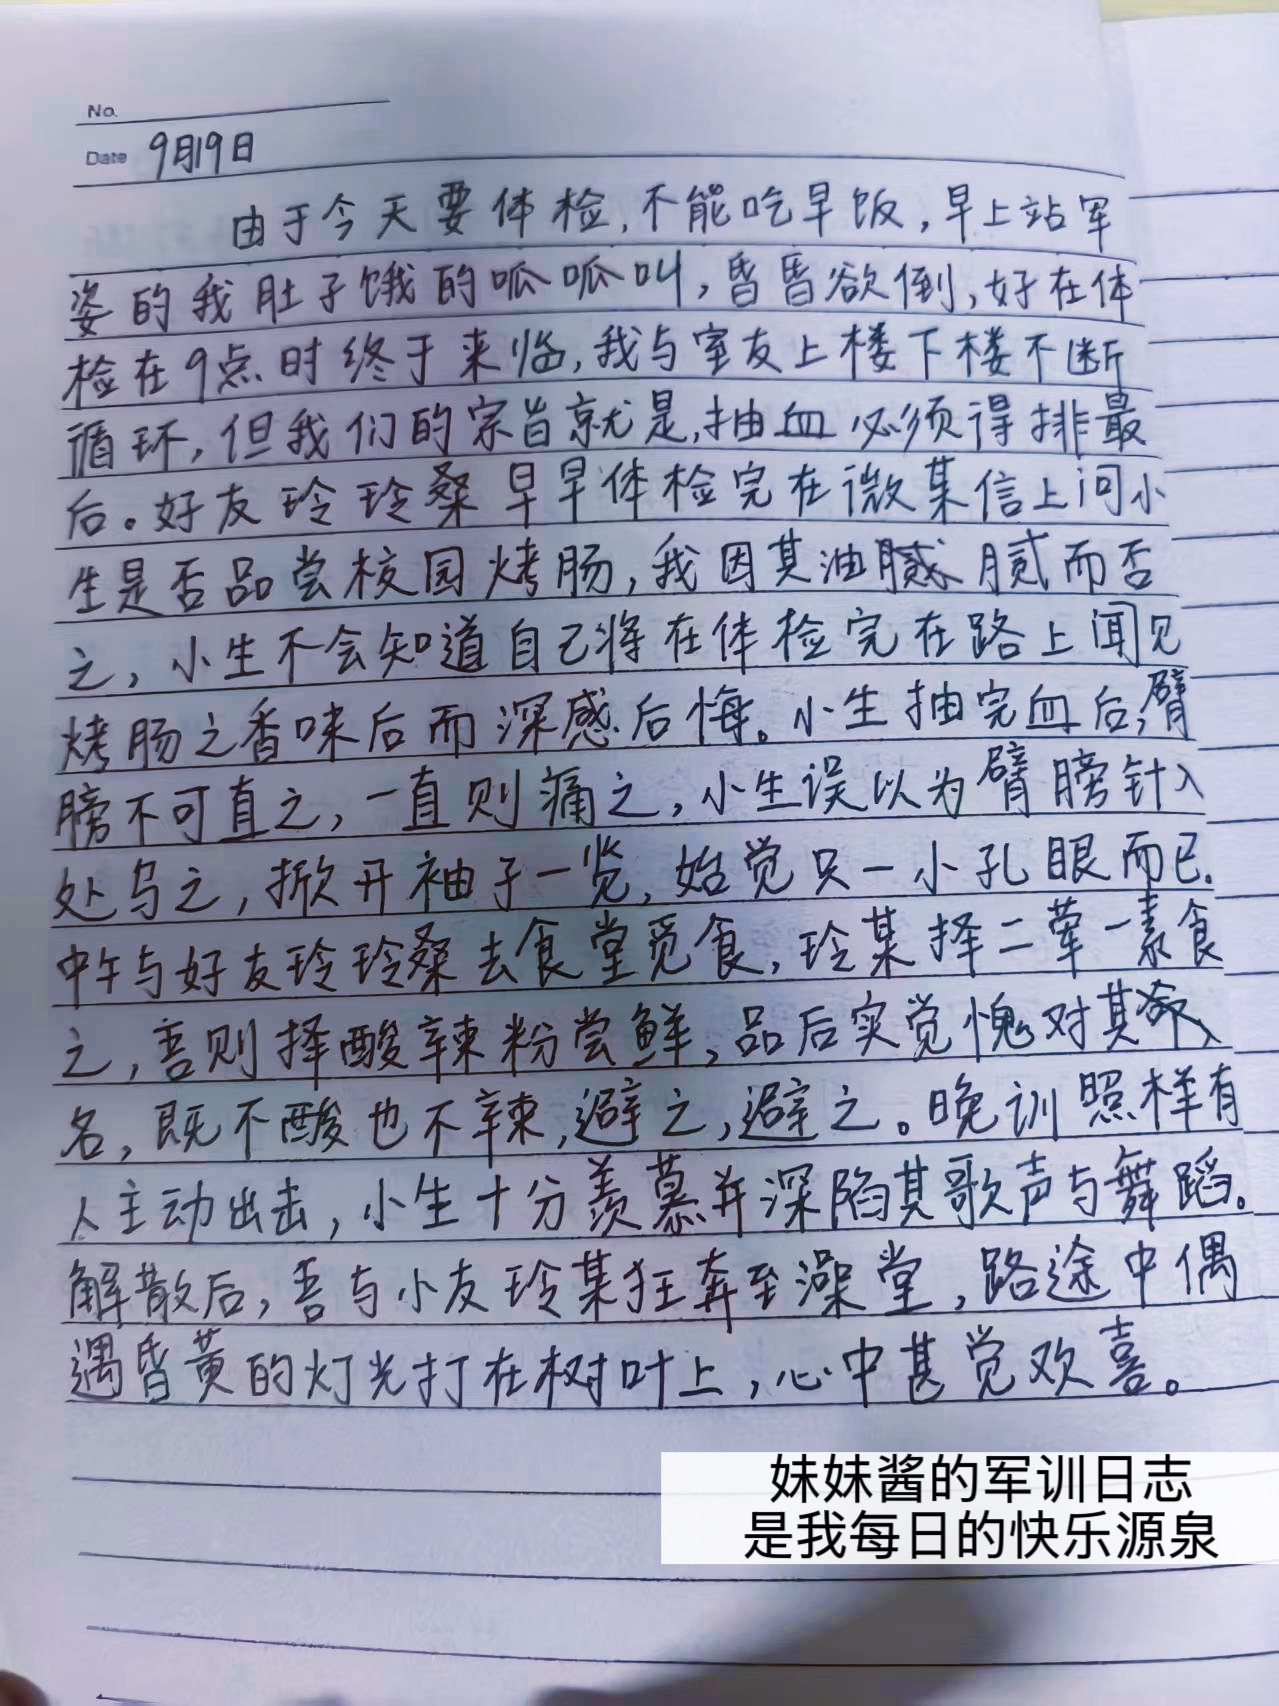 No.
Date 9月19日
由于今天要体检,不能吃早饭,早上站军
姿的我肚子饿的呱呱叫,昏昏欲倒,好在体
检在9点时终于来临,我与室友上楼下楼不断
循环,但我们的宗旨就是,抽血必须得排最
后。好友玲玲桑早早体检完在微某信上问小
生是否品尝校园烤肠,我因其油腻腻而否
之,小生不会知道自己将在体检完在路上闻见
烤肠之香味后而深感后悔。小生抽完血后,臂
膀不可直之,一直则痛之,小生误以为臂膀针入
处乌之,掀开袖子一览,始觉只一小孔眼而已.
中午与好友玲玲桑去食堂觅食,玲某择二荤一素食
之,吾则择酸辣粉尝鲜,品后实觉愧对其
名,既不酸也不辣,避之,避之。晚训照样有
人主动出击,小生十分羡慕并深陷其歌声与舞蹈。
解散后,吾与小友玲某狂奔至澡堂,路途中偶
遇昏黄的灯光打在树叶上,心中甚觉欢喜。
妹妹酱的军训日志
是我每日的快乐源泉